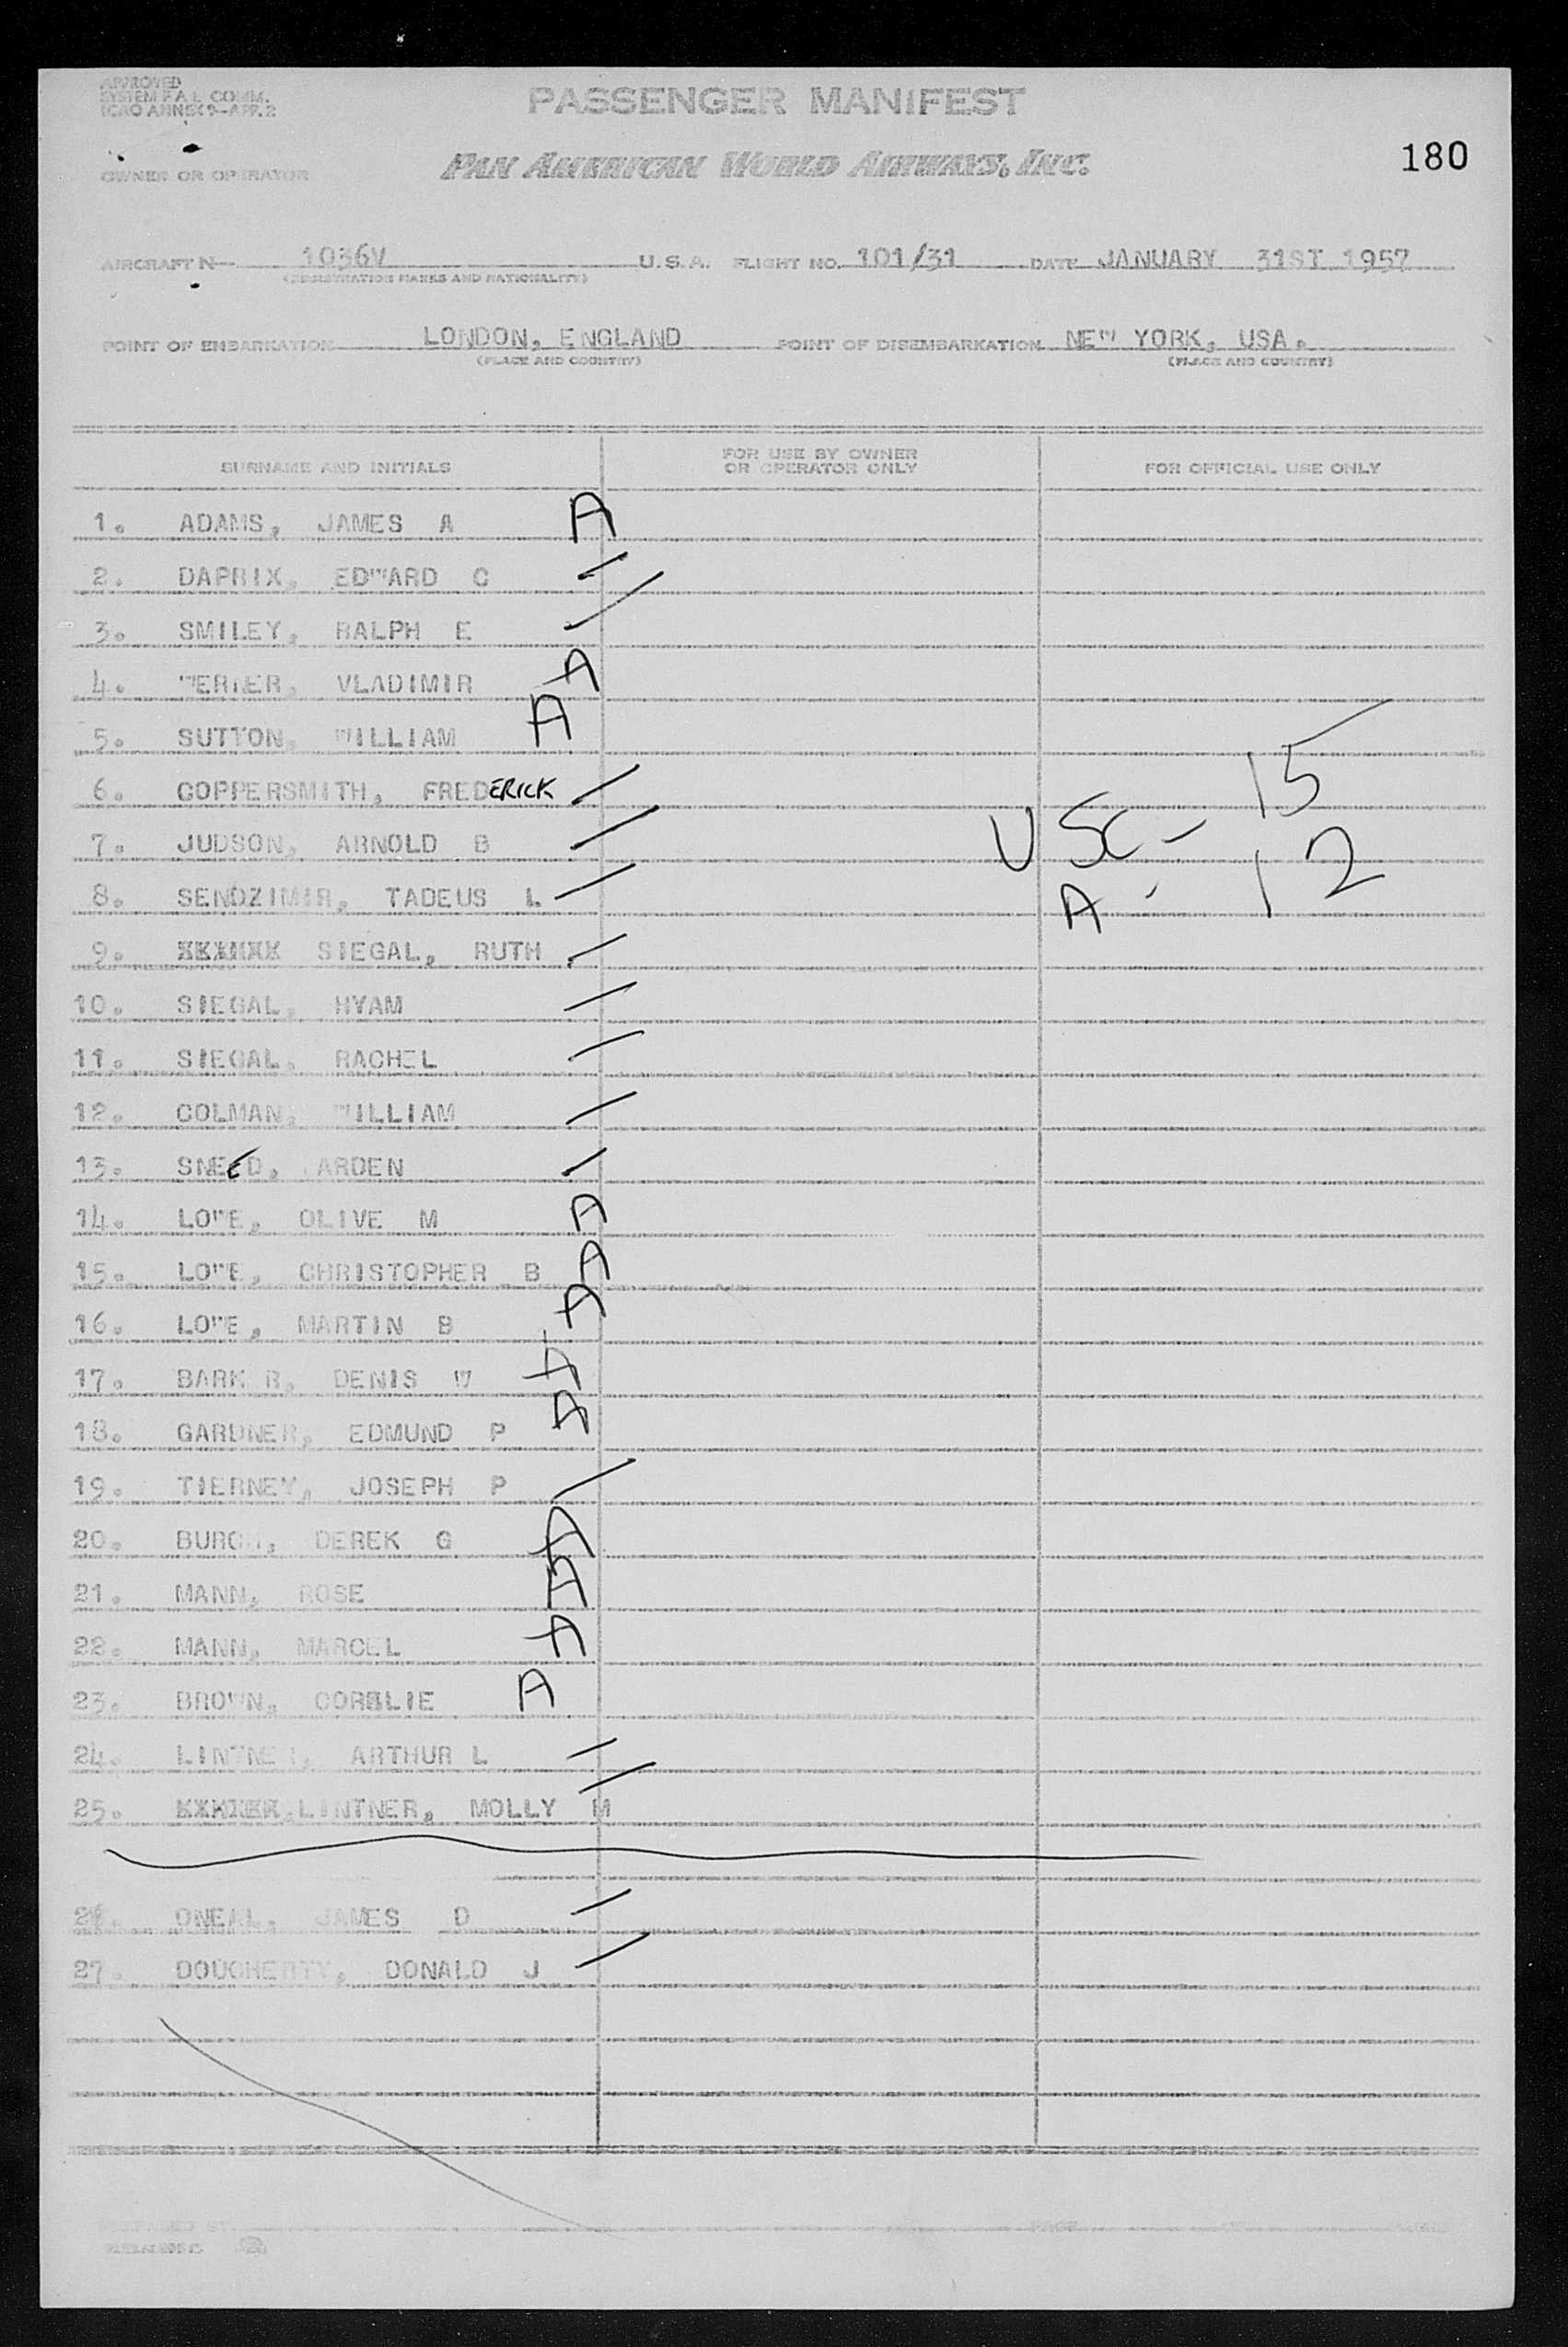 APPROVED
SYSTEM F A L COMM.
ICAO ANNEX 9-APP. 2
PASSENGER MANIFEST
PAN AMERICAN WORLD AIRWAYS, INC.
180
OWNER OR OPERATOR
AIRCRAFT N- 1036V U. S. A. FLIGHT NO. 101/31 DATE JANUARY 31ST 1957
(REGISTRATION MARKS AND NATIONALITY)
POINT OF EMBARKATION LONDON, ENGLAND POINT OF DISEMBARKATION NEW YORK, USA.
(PLACE AND COUNTRY) (PLACE AND COUNTRY)
SURNAME AND INITIALS FOR USE BY OWNER OR OPERATOR ONLY FOR OFFICIAL USE ONLY
1. ADAMS, JAMES A A
2. DAPRIX, EDWARD C /
3. SMILEY, RALPH E /
4. WERNER, VLADIMIR A
5. SUTTON, WILLIAM A
6. COPPERSMITH, FREDERICK /
7. JUDSON, ARNOLD B /
8. SENDZIMIR, TADEUS L /
9. SIEGAL, RUTH /
10. SIEGAL, HYAM /
11. SIEGAL, RACHEL /
12. COLMAN, WILLIAM /
13. SNEED, ARDEN /
14. LOWE, OLIVE M A
15. LOWE, CHRISTOPHER B A
16. LOWE, MARTIN B A
17. BARKER, DENIS W A
18. GARDNER, EDMUND P A
19. TIERNEY, JOSEPH P /
20. DEREK G A
21. MANN, ROSE A
22. MANN, MARCEL A
23. BROWN, A
24. LINTNER, ARTHUR L /
25. LINTNER, MOLLY M /
ONEAL, JAMES D /
27. DOUGHERTY, DONALD J /
USC - 15
A - 12
PAGE